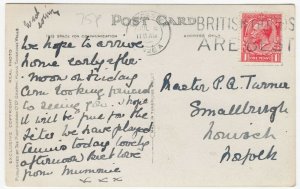 Wed evening
75p
POST CARD
THIS SPACE FOR COMMUNICATION
ADDRESS ONLY
BRITISH GOODS
ARE BEST
We hope to arrive
home early after
noon on Friday
Am looking forward
to seeing you. I hope
it will be fine for the
fête we have played
tennis today lovely
afternoon best love
from Mummie
x x x
Master P. A. Turner
Smallburgh
Norwich
Norfolk
EXCLUSIVE COPYRIGHT
REAL PHOTO